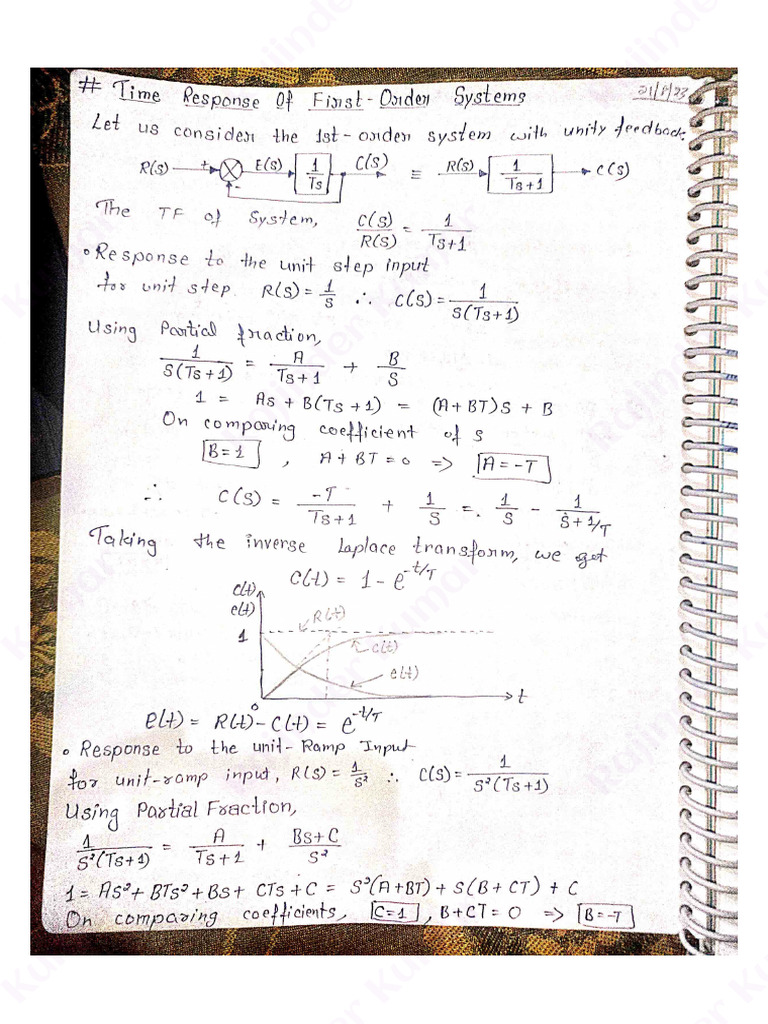 # Time Response Of First-Order Systems
Let us consider the 1st-order system with unity feedback.
R(S) + - E(S) 1/TS C(S) ≡ R(S) 1/TS+1 C(S)
The TF of System, C(S)/R(S) = 1/TS+1
• Response to the unit step input
for unit step R(S) = 1/S ∴ C(S) = 1/S(TS+1)
Using Partial fraction,
1/S(TS+1) = A/TS+1 + B/S
1 = AS + B(TS+1) = (A+BT)S + B
On comparing coefficient of S
B=1 , A+BT=0 => A=-T
∴ C(S) = -T/TS+1 + 1/S = 1/S - 1/S+1/T
Taking the inverse Laplace transform, we get
C(t) = 1 - e^-t/T
c(t)
e(t)
R(t)
1
c(t)
e(t)
t
0
e(t) = R(t)-C(t) = e^-t/T
• Response to the unit-Ramp Input
for unit-ramp input, R(S) = 1/S² ∴ C(S) = 1/S²(TS+1)
Using Partial Fraction,
1/S²(TS+1) = A/TS+1 + BS+C/S²
1 = AS²+BTS²+BS+CTS+C = S²(A+BT)+S(B+CT)+C
On comparing coefficients, C=1 , B+CT=0 => B=-T
Rajinder Kumar